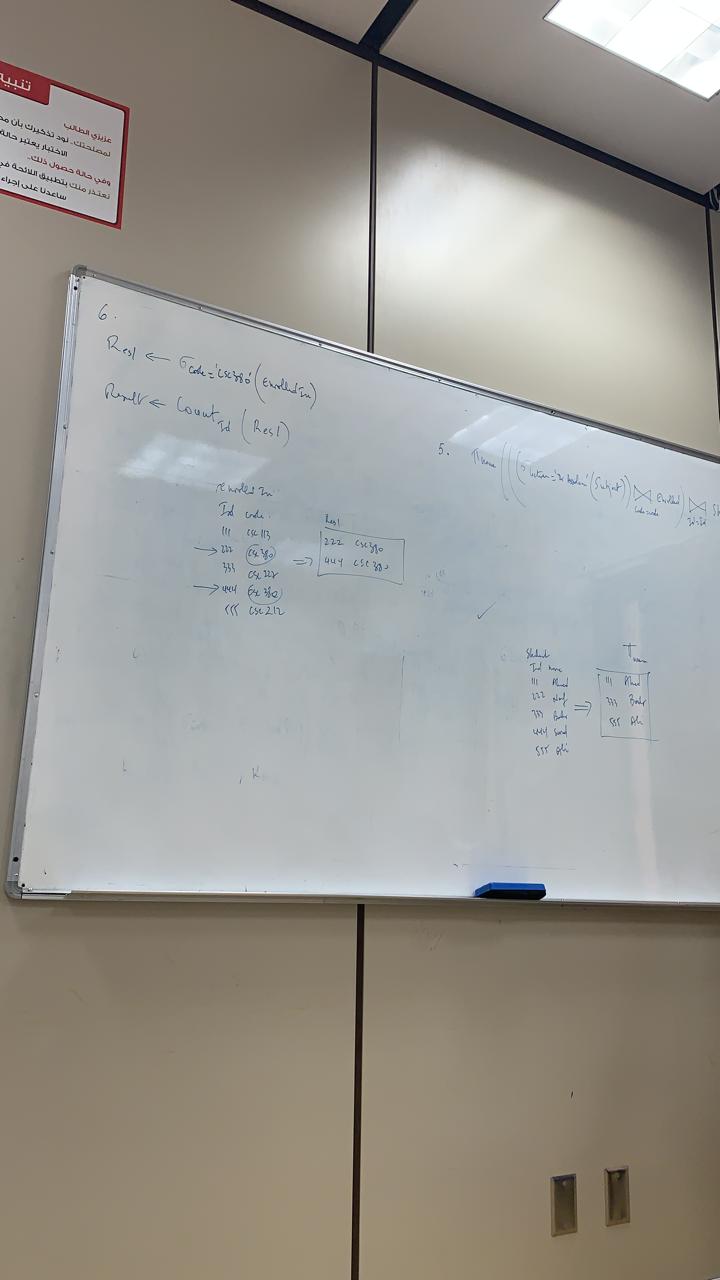 تنبيه
عزيزي الطالب
لمصلحتك.. نود تذكيرك بأن
الاختبار يعتبر حالة
وفي حالة حصول ذلك..
نعتذر منك بتطبيق اللائحة
ساعدنا على إجراء
6.
Res1 ← σ code='CSC380' (Enrolled In)
Result ← Count Id (Res1)
Enrolled In
Id code
111 CSC113
→ 222 CSC380
333 CSC227
→ 444 CSC380
555 CSC212
⇒
Res1
222 CSC380
444 CSC380
5. π name (((σ (Subject)) ⋈ code=code Enrolled) ⋈ Id=Id St
Student
Id name
111 Ahmed
222
333 Bader
444 Saud
555 Ali
⇒
π name
111 Ahmed
333 Bader
555 Ali